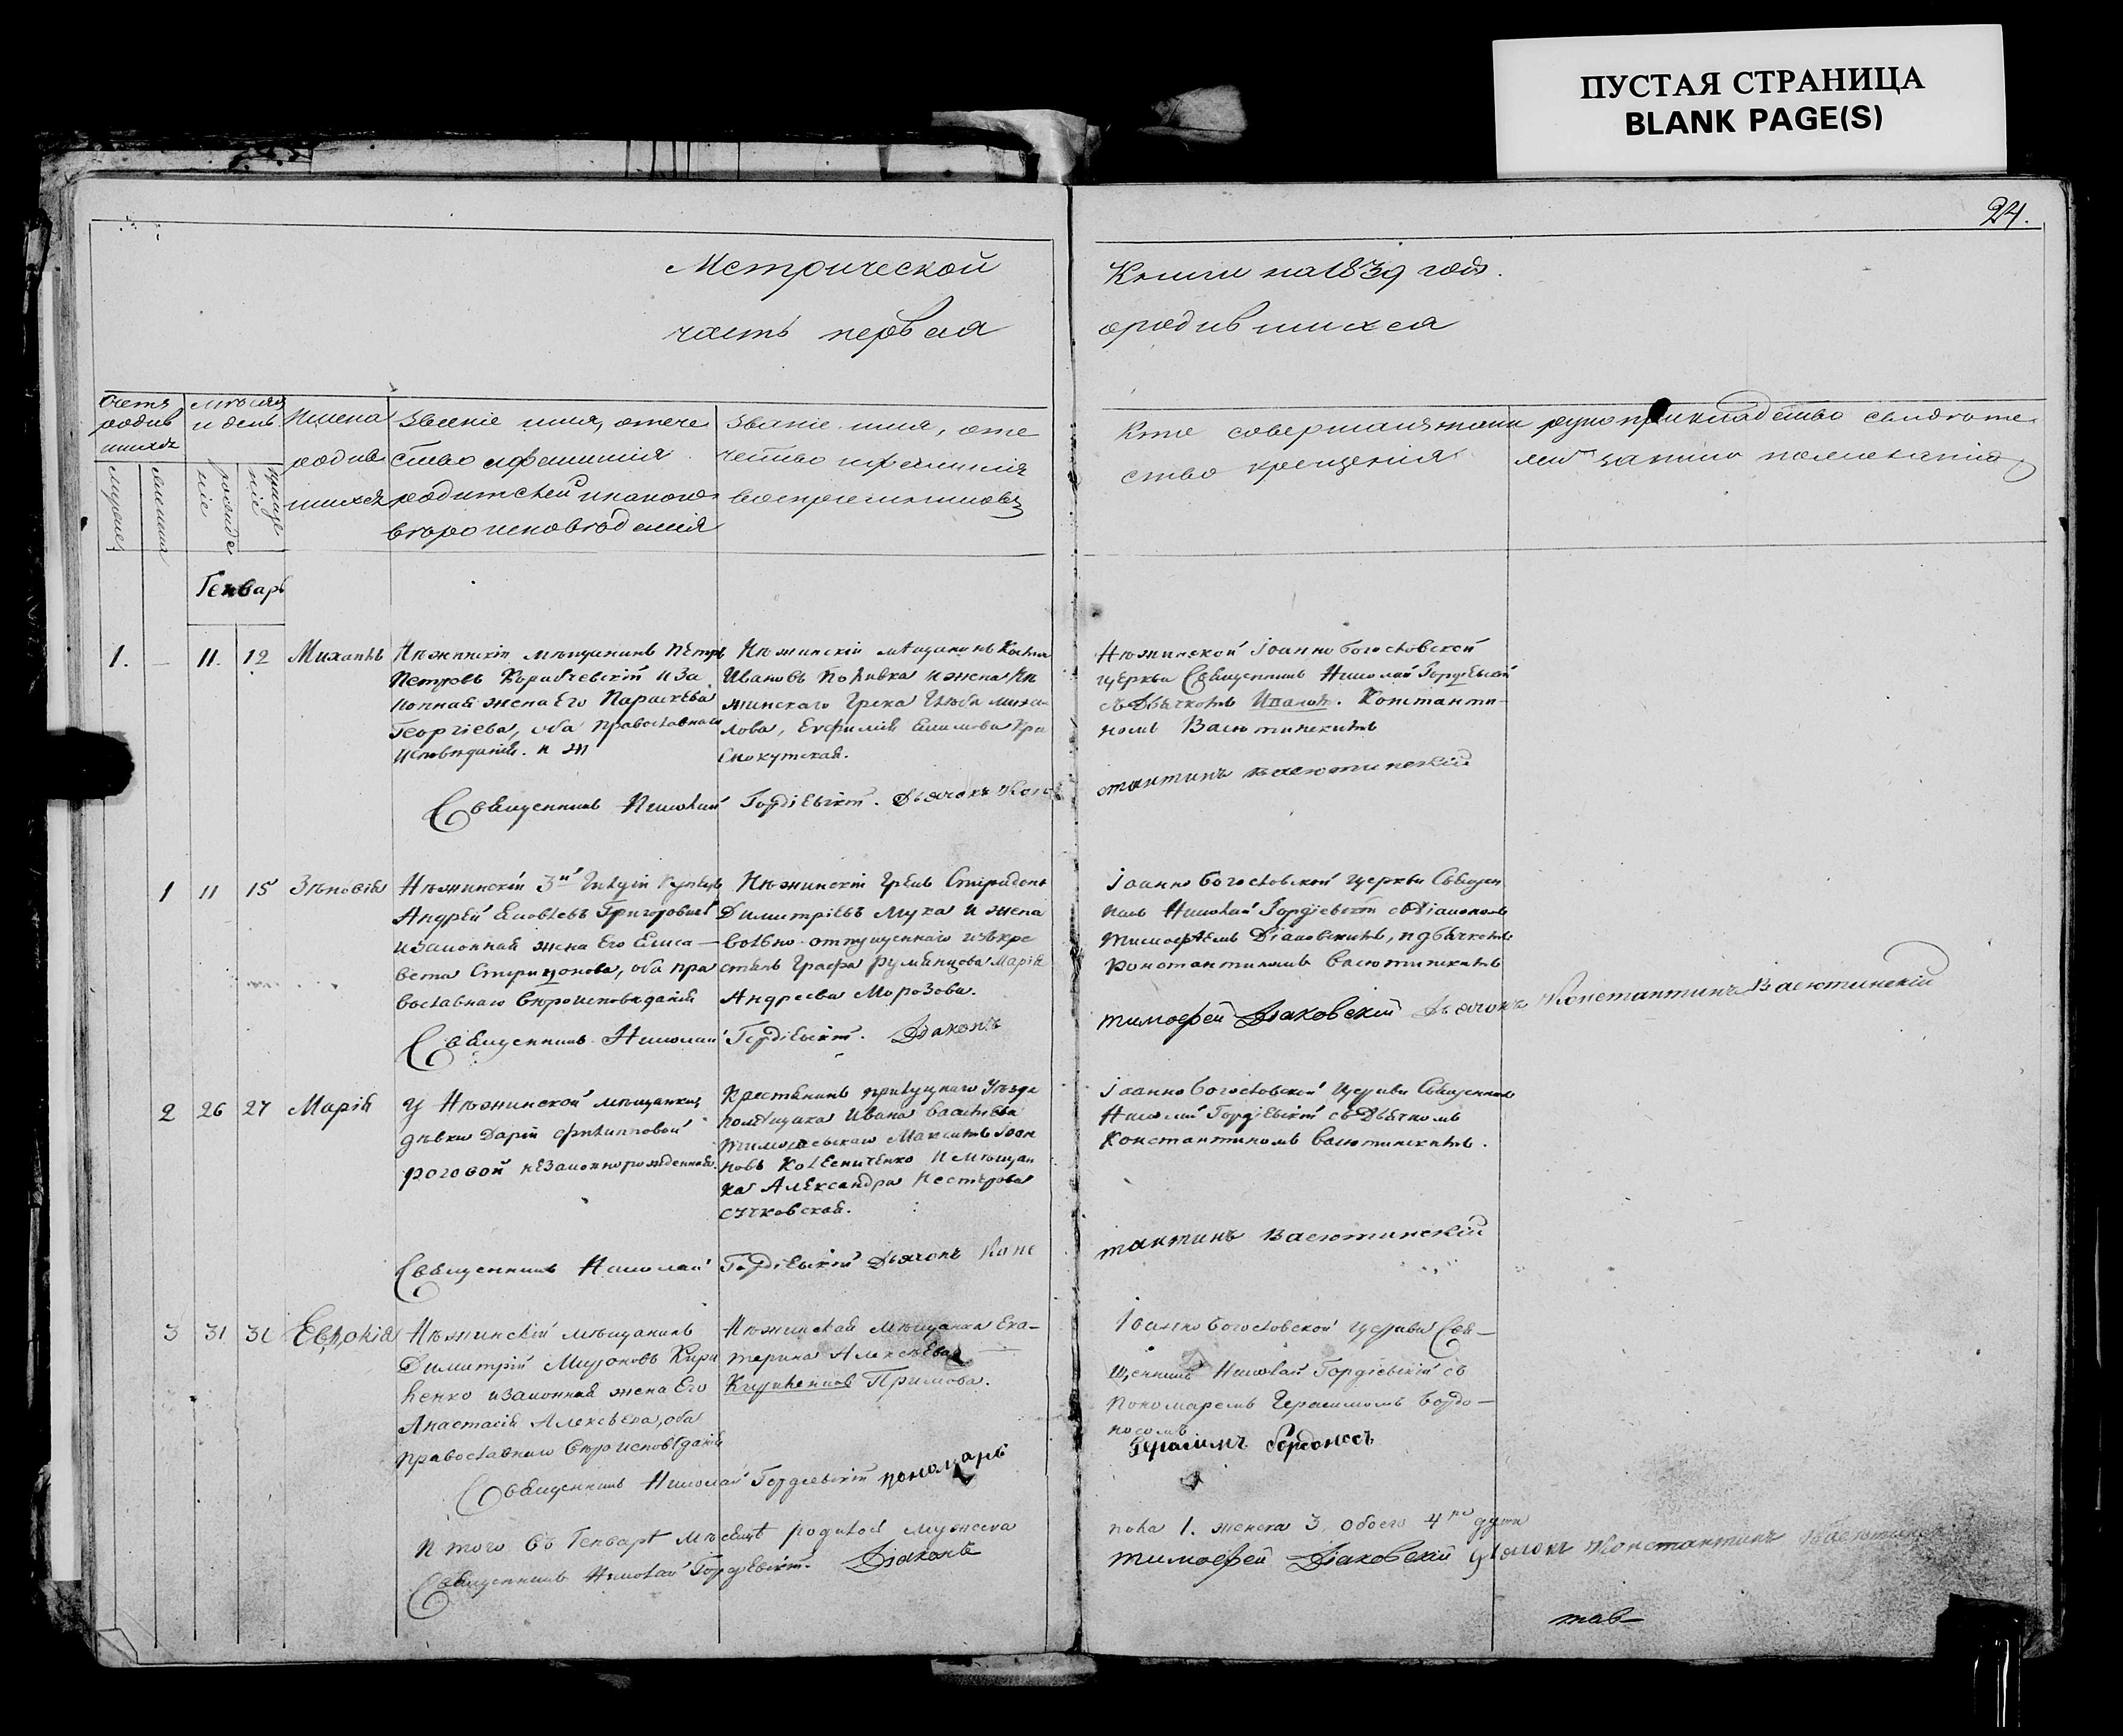 ПУСТАЯ СТРАНИЦА
BLANK PAGE(S)
24.
Метрической Книги на 1839 годъ.
часть первая о родившихся
Счетъ родив шихся
мужеска
женска
месяцъ и день
рожде ніе
креще ніе
Имена родив шихся
Званіе имя, отече
ство и фамилія
родителей и какого
вѣроисповѣданія
Званіе имя, оте
чество и фамилія
воспріемниковъ
Кто совершалъ таин
ство крещенія
рукоприкладство свидѣте
лей записи по желанію
Генварь
1. — 11. 12 Михаилъ
Нѣжинскій мѣщанинъ Петръ
Петровъ Корибчевскій и За
конная жена Его Параскева
Георгіева, оба православнаго
исповѣданія.
Нѣжинскій мѣщанинъ Косма
Ивановъ Поливка и жена Нѣ
жинскаго Грека Глѣба Михай
лова, Евфимія Красно
кутская.
Нѣжинской Іоанно Богословской
церкви Священникъ Николай Гордіевскій
съ Дьячкомъ Константи-
номъ Васютинскимъ
Священникъ Николай Гордіевскій. Дьячокъ Конс
тантинъ Васютинскій
1 11 15 Зѣновія
Нѣжинскій 3й Гильдіи Купецъ
Андрей Яковлевъ Григоровичъ
и Законная жена Его Елиса—
вета Спиридонова, оба пра
вославнаго вѣроисповѣданія
Нѣжинскій Грекъ Спиридонъ
Димитріевъ Мука и жена
вольно-отпущеннаго изъ кре
стьянъ Графа Румянцова Марія
Андреева Морозова.
Іоанно Богословской церкви Священ
никъ Николай Гордіевскій съ Діакономъ
Тимофѣемъ Діаковскимъ, и дьячкомъ
Константиномъ Васютинскимъ
Священникъ Николай Гордіевскій. Діаконъ
Тимофей Діаковский Дьячокъ Константинъ Васютинскій
2 26 27 Марія
У Нѣжинской мѣщанки
дѣвки Даріи Филипповой
Роговой незаконнорожденная.
Крестьянинъ прилуцкаго Уѣзда
помѣщика Ивана Васильева
Максимъ Іоан
новъ Колесниченко и мѣщан
ка Александра Нестерова
Сѣчковская.
Іоанно Богословской Церкви Священникъ
Николай Гордіевскій съ Дьячкомъ
Константиномъ Васютинскимъ.
Священникъ Николай Гордіевскій Дьячокъ Конс
тантинъ Васютинскій
3 31 31 Евдокія
Нѣжинскій мѣщанинъ
Димитрій Мироновъ Кири
ленко и Законная жена Его
Анастасія Алексѣева, оба
православнаго вѣроисповѣданія
Нѣжинская мѣщанка Ека—
терина Алексѣева
Примова.
Іоанно Богословской церкви Свя—
щенникъ Николай Гордіевскій съ
Пономаремъ Герасимомъ Бордо—
носомъ
Священникъ Николай Гордіевскій пономарь
Герасимъ Бордоносъ
И того въ Генварѣ мѣсяцѣ родилось мужеска
пола 1. женска 3. обоего 4ре души
Священникъ Николай Гордіевскій. Діаконъ
Тимофей Діаковский дьячокъ Константинъ Васютинскій